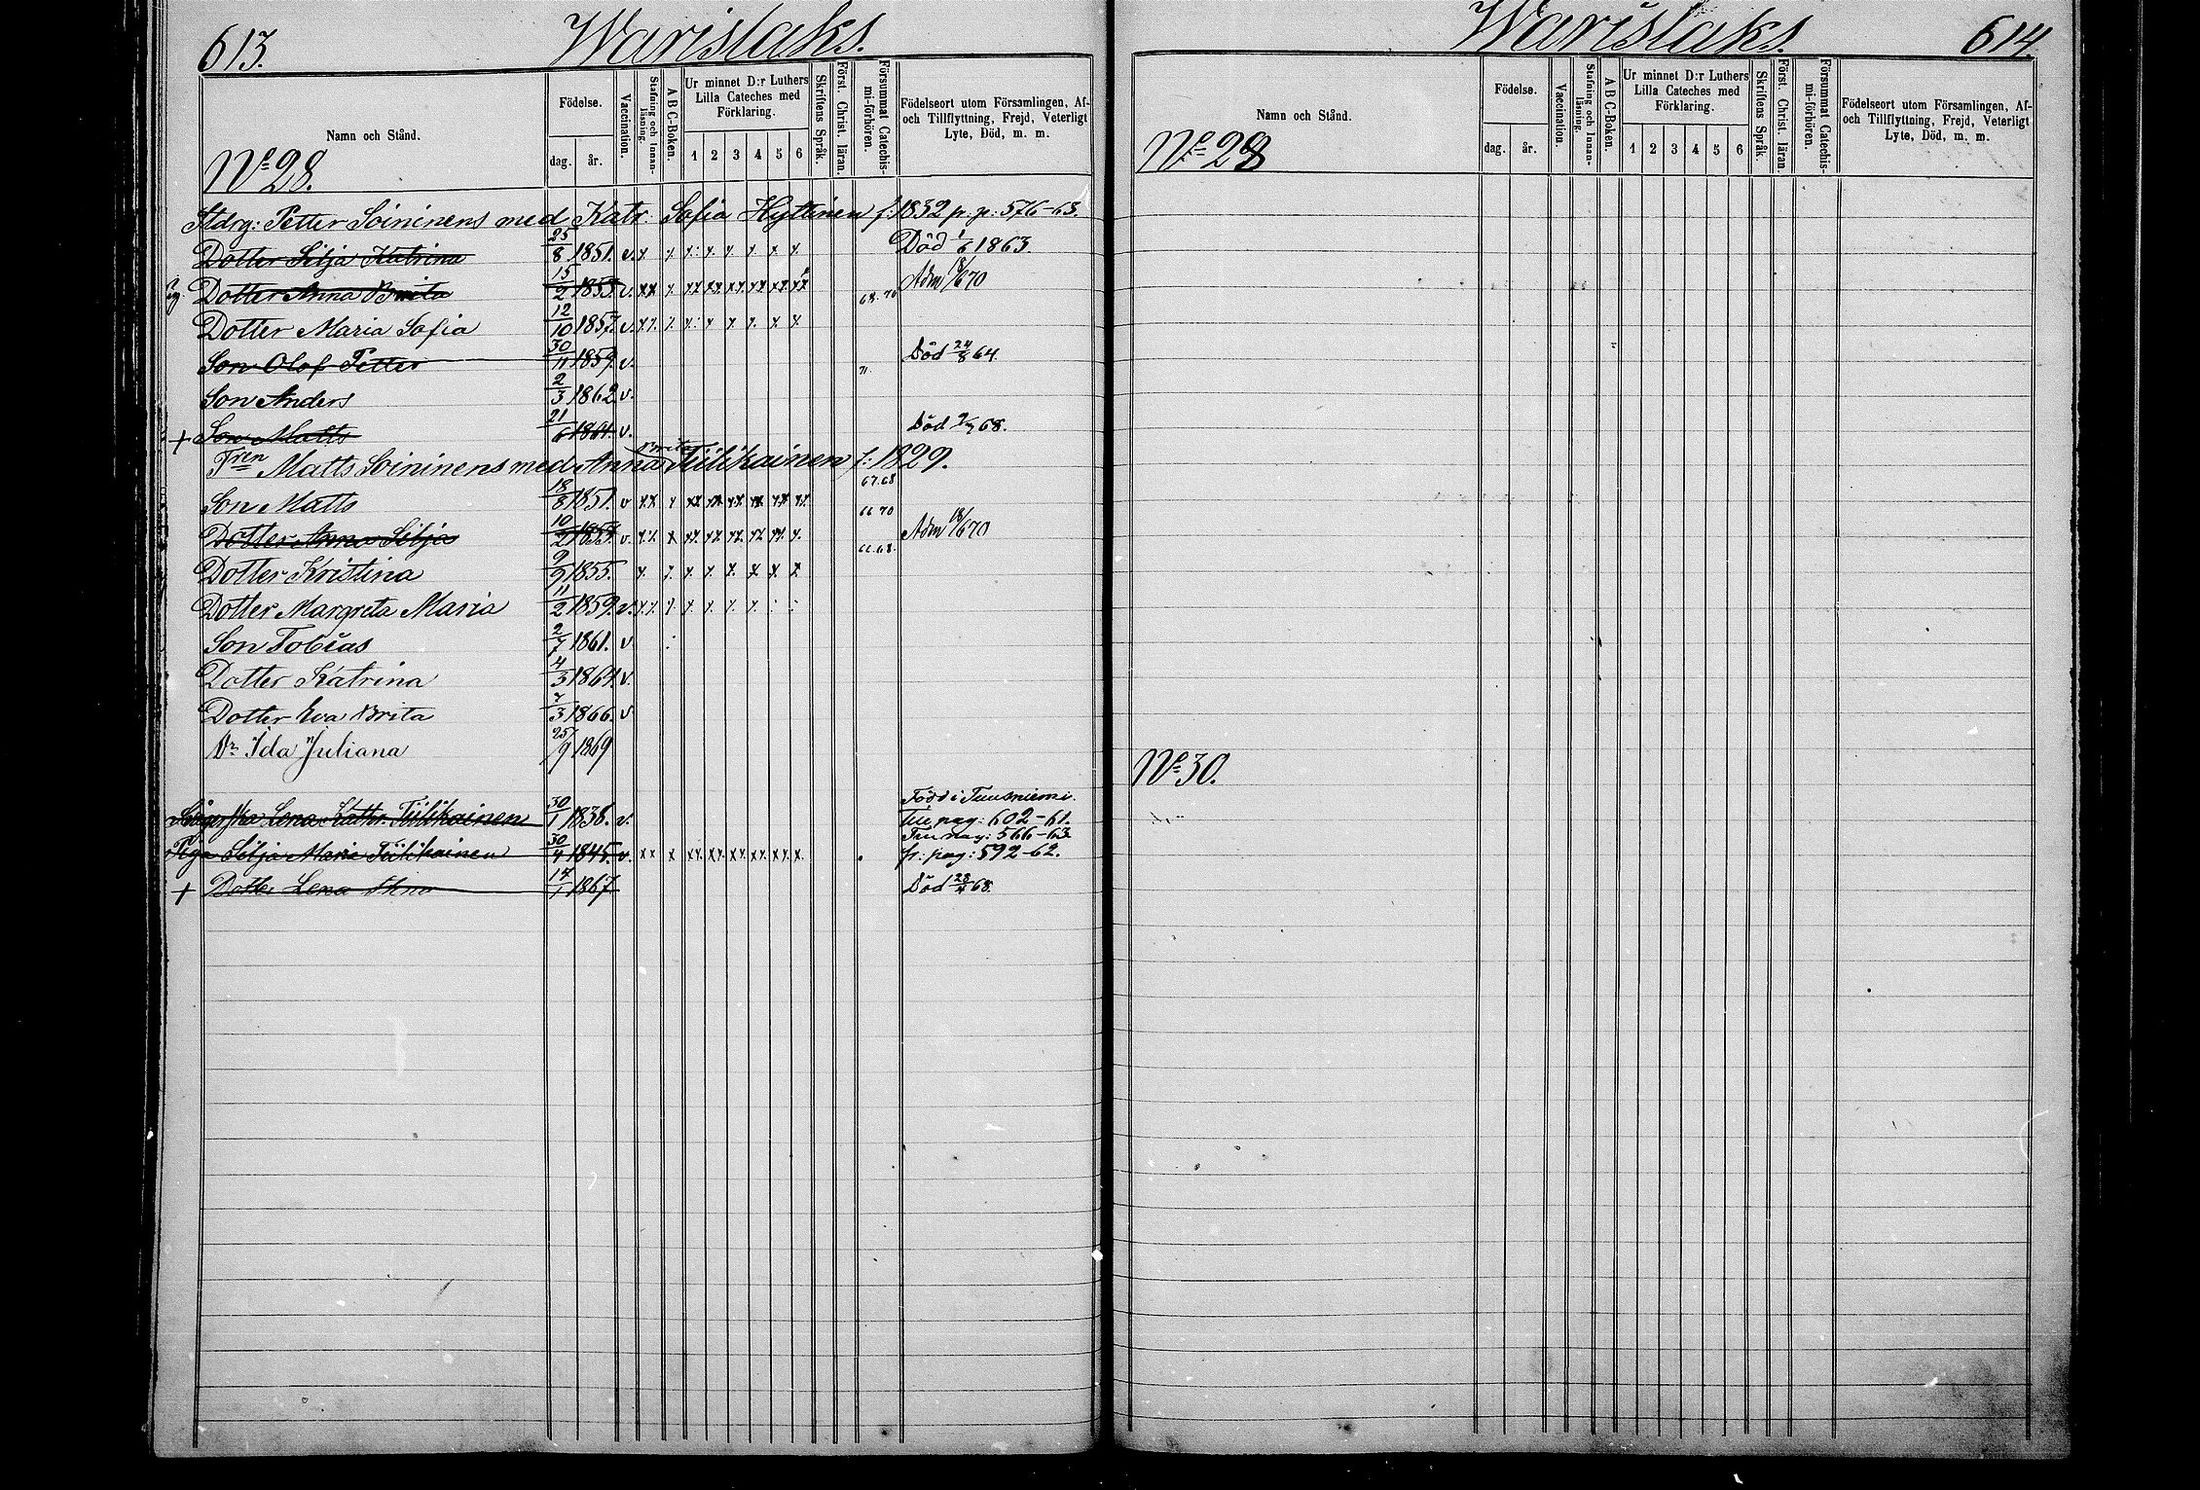 613.
Warislaks.
Namn och Stånd.
Födelse.
dag.
år.
Vaccination.
Stafning och Innan-
läsning.
A B C-Boken.
Ur minnet D:r Luthers
Lilla Cateches med
Förklaring.
1 2 3 4 5 6
Skriftens Språk.
Först. Christ. läran.
Försummat Catechis-
mi-förhören.
Födelseort utom Församlingen, Af-
och Tillflyttning, Frejd, Veterligt
Lyte, Död, m. m.
No 28.
Stdrg: Petter Soininens med Katr. Sofia Hyttinen f: 1832 fr. p: 576-63.
Dotter Silja Katrina 25/8 1851. v. x x x x x x x x Död 1/6 1863.
Dotter Anna Brita 15/2 1855. v. xx x xx xx xx xx xx xx 68.70 Adm 18/6 70
Dotter Maria Sofia 12/10 1857. v. xx x x x x x x x
Son Olof Petter 30/11 1859. v. 71. Död 24/8 64.
Son Anders 2/3 1862 v.
+ Son Matts 21/6 1864. v. Död 9/7 68.
Matts Soininens med Anna Brita Tiilikainen f: 1829.
Son Matts 18/8 1851. v xx x xx xx xx xx xx xx 67.68
Dotter Anna Silja 10/2 1853. v. xx x xx xx xx xx xx x. 66 70 Adm 18/6 70
Dotter Kristina 9/9 1855. x. x. x. x. x. x. x. x 66.68.
Dotter Margreta Maria 11/2 1859. v. xx x x. x. x. x.
Son Tobias 2/7 1861. v.
Dotter Katrina 4/3 1864. v.
Dotter Eva Brita 7/3 1866. v.
Dr Ida Juliana 25/9 1869
Född i Tuusniemi.
Lena Kathr. Tiilikainen 30/1 1838. v. Till pag: 602-61.
Piga Silja Maria Tiilikainen 30/4 1845. v. xx x xx xx xx xx xx x. fr: pag: 592-62.
+ Dotter Lena Stina 17/1 1867 Död 23/4 68.
Warislaks.
614.
Namn och Stånd.
Födelse.
dag.
år.
Vaccination.
Stafning och Innan-
läsning.
A B C-Boken.
Ur minnet D:r Luthers
Lilla Cateches med
Förklaring.
1 2 3 4 5 6
Skriftens Språk.
Först. Christ. läran.
Försummat Catechis-
mi-förhören.
Födelseort utom Församlingen, Af-
och Tillflyttning, Frejd, Veterligt
Lyte, Död, m. m.
No 29
No 30.